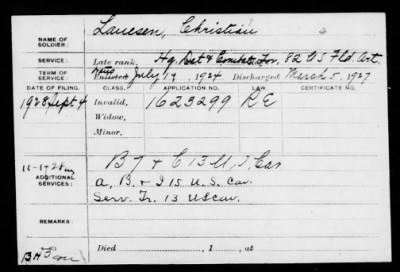 NAME OF SOLDIER: Laussen, Christian
SERVICE: Late rank, Hq. Det & Combat Trn. 82 US Fld. Art.
TERM OF SERVICE: Enlisted July 19, 1924 Discharged March 5, 1927
DATE OF FILING. CLASS. APPLICATION NO. LAW. CERTIFICATE NO.
1928 Sept. 4 Invalid, 1623299 RE
Widow,
Minor,
11-1-28
ADDITIONAL SERVICES: B, & C 13 U.S. Cav
A, B. & I 15 U.S. Cav.
Serv. Tr. 13 US Cav.
REMARKS:
Died , 1 , at